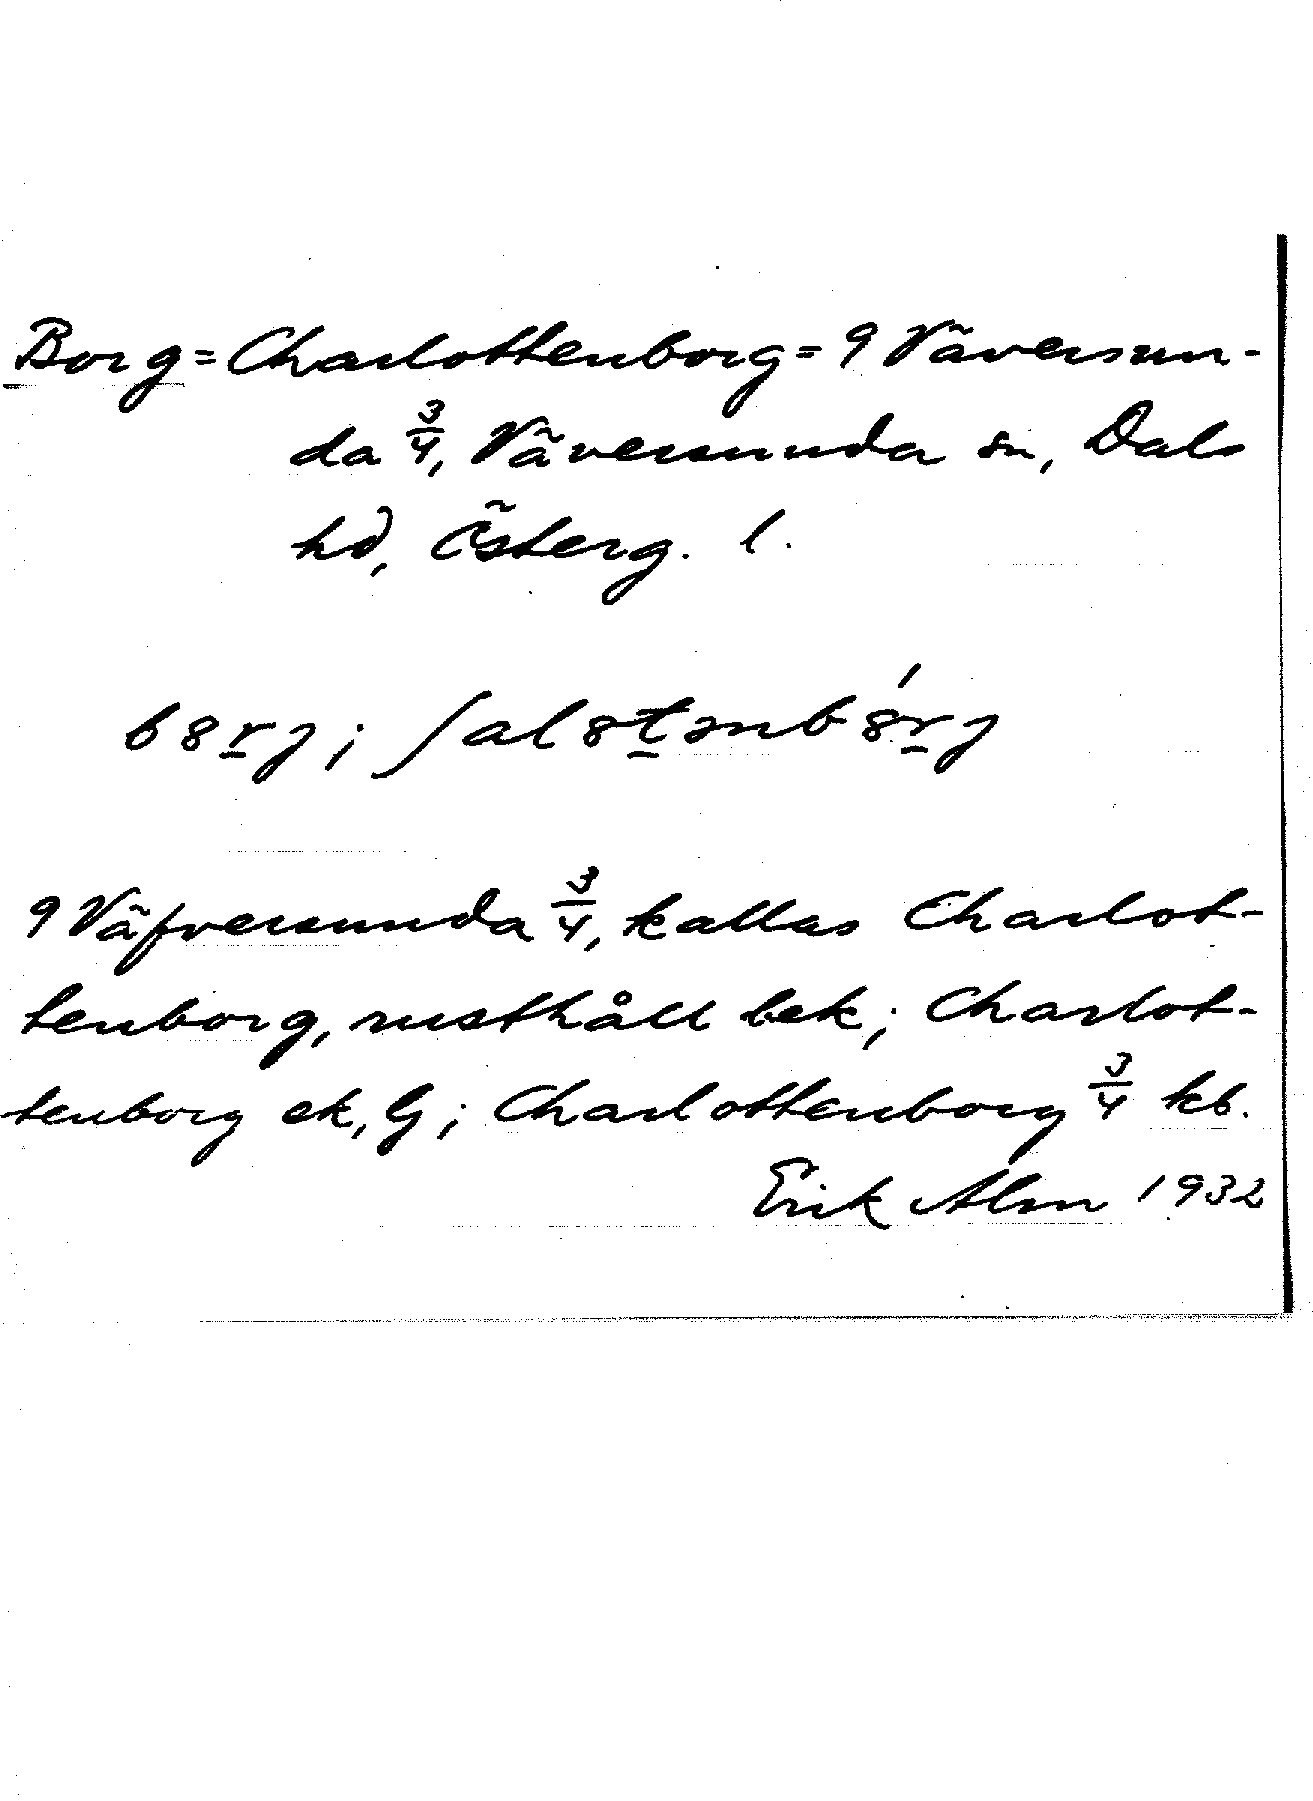 Borg = Charlottenborg = 9 Väversun-
da 3/4, Väversunda sn, Dals
hd, Österg. l.
b8rj; ʃal8tənb8́rj
9 Väfversunda 3/4, kallas Charlot-
tenborg, rusthåll bek; Charlot-
tenborg ek, G; Charlottenborg 3/4 kb.
Erik Alm 1932